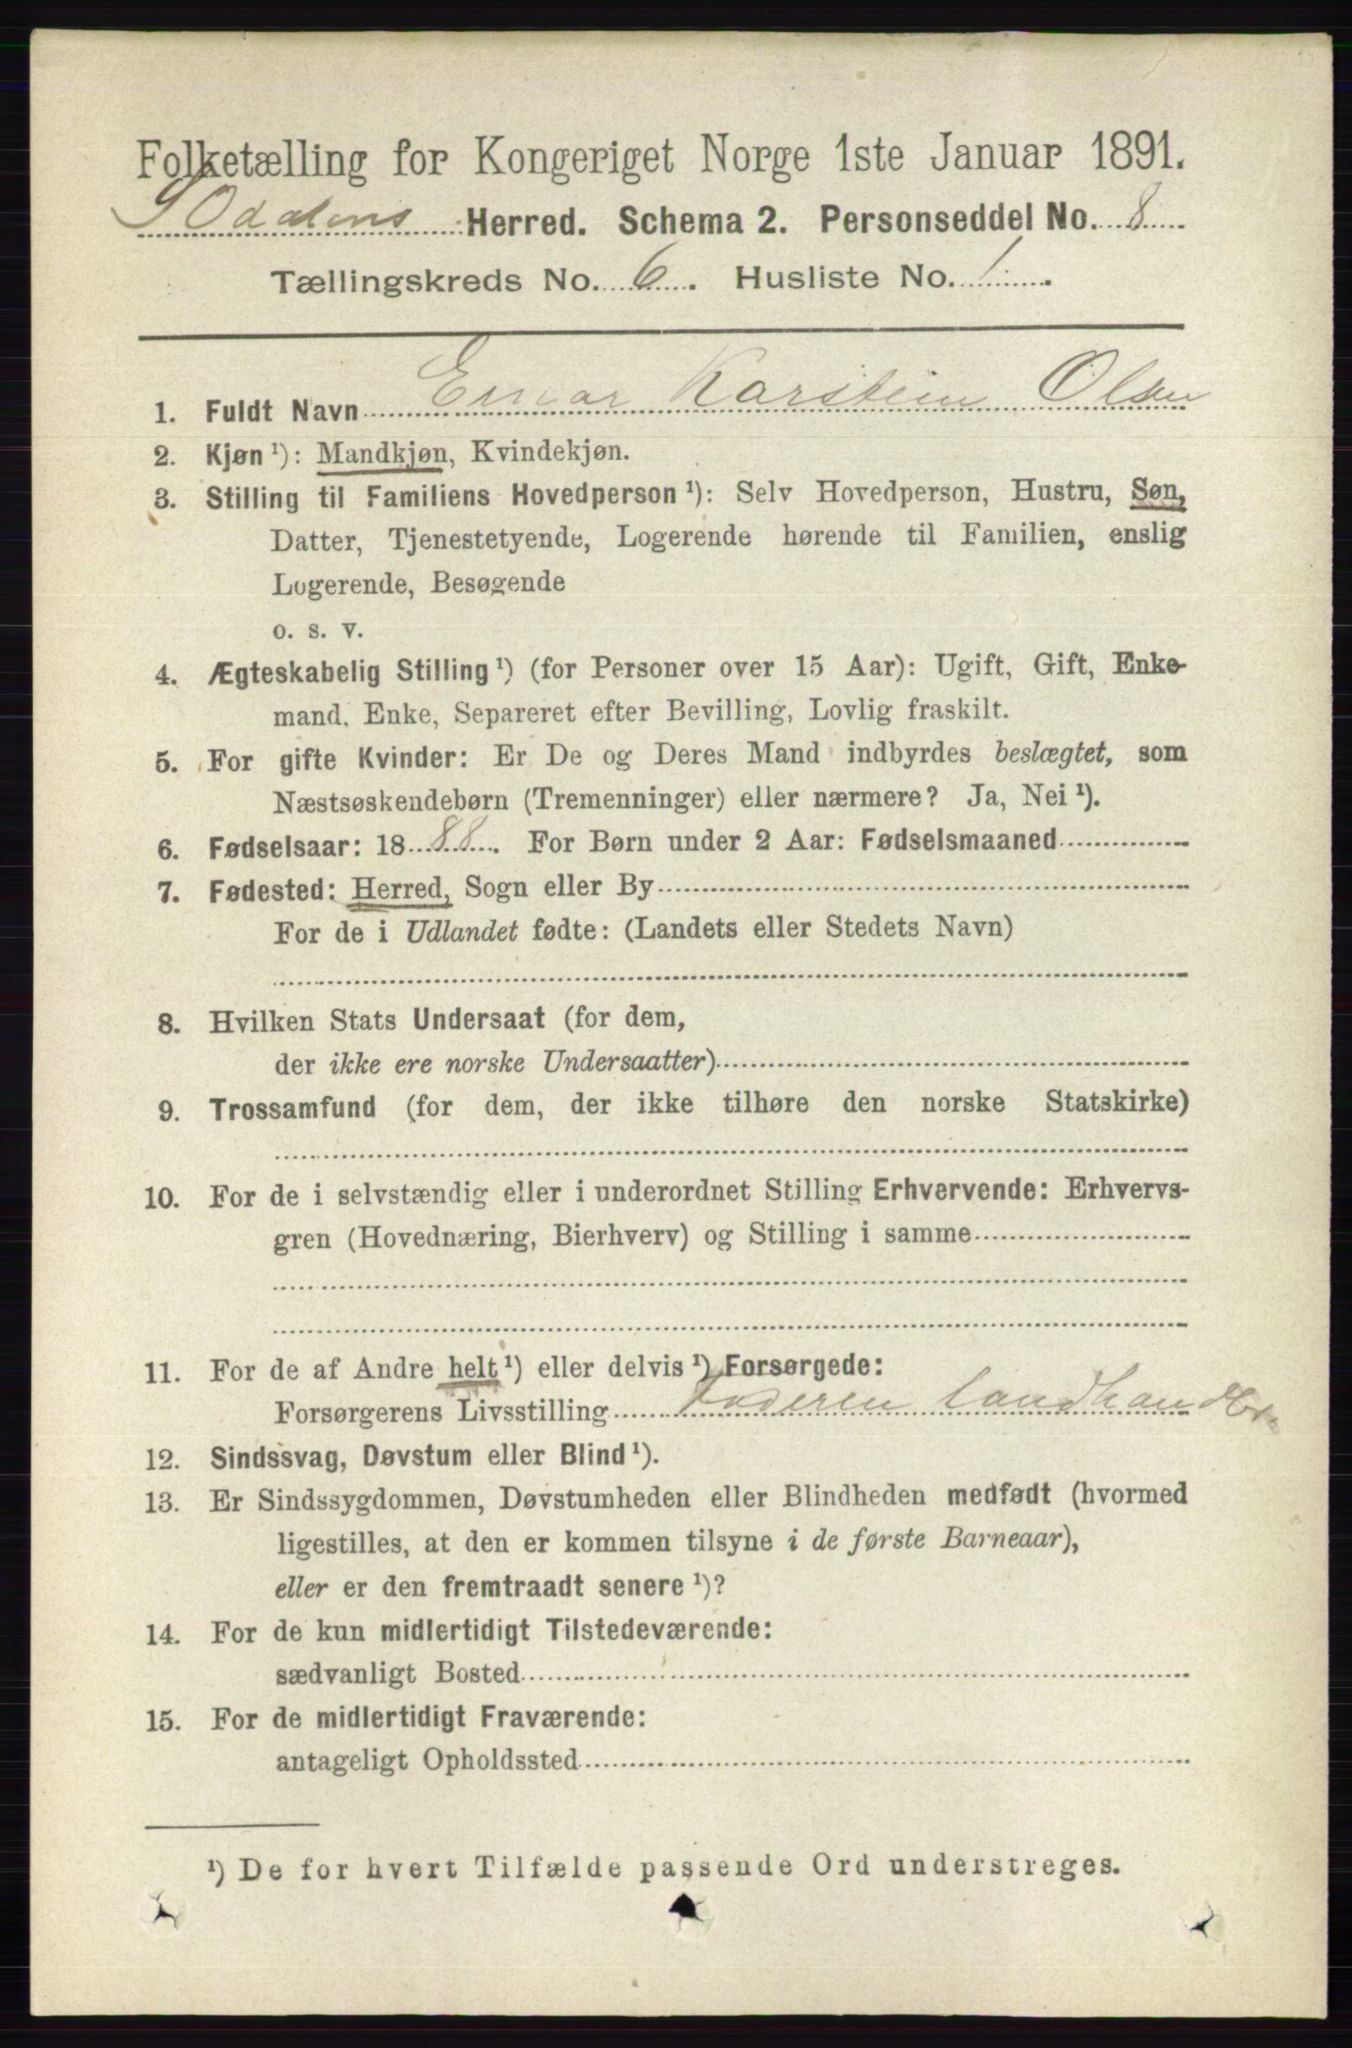 Folketælling for Kongeriget Norge 1ste Januar 1891.
S Odalens Herred. Schema 2. Personseddel No. 8
Tællingskreds No. 6. Husliste No. 1.
1. Fuldt Navn Einar Karstein Olsen
2. Kjøn ¹): Mandkjøn, Kvindekjøn.
3. Stilling til Familiens Hovedperson ¹): Selv Hovedperson, Hustru, Søn,
Datter, Tjenestetyende, Logerende hørende til Familien, enslig
Logerende, Besøgende
o. s. v.
4. Ægteskabelig Stilling ¹) (for Personer over 15 Aar): Ugift, Gift, Enke-
mand, Enke, Separeret efter Bevilling, Lovlig fraskilt.
5. For gifte Kvinder: Er De og Deres Mand indbyrdes beslægtet, som
Næstsøskendebørn (Tremenninger) eller nærmere? Ja, Nei ¹).
6. Fødselsaar: 1888. For Børn under 2 Aar: Fødselsmaaned
7. Fødested: Herred, Sogn eller By
For de i Udlandet fødte: (Landets eller Stedets Navn)
8. Hvilken Stats Undersaat (for dem,
der ikke ere norske Undersaatter)
9. Trossamfund (for dem, der ikke tilhøre den norske Statskirke)
10. For de i selvstændig eller i underordnet Stilling Erhvervende: Erhvervs-
gren (Hovednæring, Bierhverv) og Stilling i samme
11. For de af Andre helt ¹) eller delvis ¹) Forsørgede:
Forsørgerens Livsstilling Faderen landhandler
12. Sindssvag, Døvstum eller Blind ¹).
13. Er Sindssygdommen, Døvstumheden eller Blindheden medfødt (hvormed
ligestilles, at den er kommen tilsyne i de første Barneaar),
eller er den fremtraadt senere ¹)?
14. For de kun midlertidigt Tilstedeværende:
sædvanligt Bosted
15. For de midlertidigt Fraværende:
antageligt Opholdssted
¹) De for hvert Tilfælde passende Ord understreges.